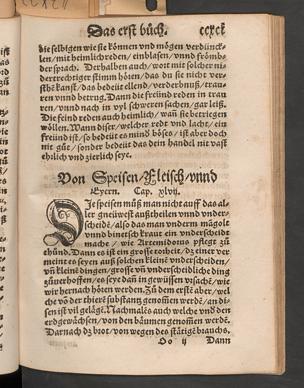 Das erst bůch.
die selbigen wie sie können vnd mögen verdünck-
len / mit heimlich reden / einblasen / vnnd frömb-
der sprach. Derhalben auch / wo mit solcher ni-
dertrechtiger stimm hören / das du sie nicht ver-
sthe kanst / das bedeüt ellend / verderbnuß / trau-
ren vnnd betrug. Dann die freünd reden in trau-
ren / vnnd nach in vyl schweren sachen / gar leiß.
Die feind reden auch heimlich / wañ sie betriegen
wöllen. Wann diser / welcher redt vnd lacht / ein
freünd ist / so bedeüt es mind böses / ist aber doch
nit gůt / sonder bedeüt das dein handel nit vast
ehrlich vnd zierlich seye.
Von Speisen / Fleisch / vnnd
Eyern. Cap. xlvij.
Die speisen můß man nicht auff das al-
ler gneüwest außtheilen vnnd vnder-
scheidē / also das man vndern mägolt
vnnd binetsch kraut ein vnderscheidt
mache / wie Artemidorus pflegt zů
thůnd. Dann es ist ein grosse torheit / dz einer ver-
meinte es seyen auß solchen kleinē vnderscheiden /
vñ kleinē dingen / grosse vñ vnderscheidliche ding
zůuerhoffen / es seye dañ in gewüssen vrsachē / wie
wir hernach hören werden. Zům ersten aber / wel-
che vō der thier substantz genom̃en werdē / an di-
sen ist vil gelägē. Nachmales auch welche vnd den
erdgewächsen / von den bäumen genom̃en werdē.
Darnach dz brot / von wegen des stätigē brauchs,
Oo ij Dann